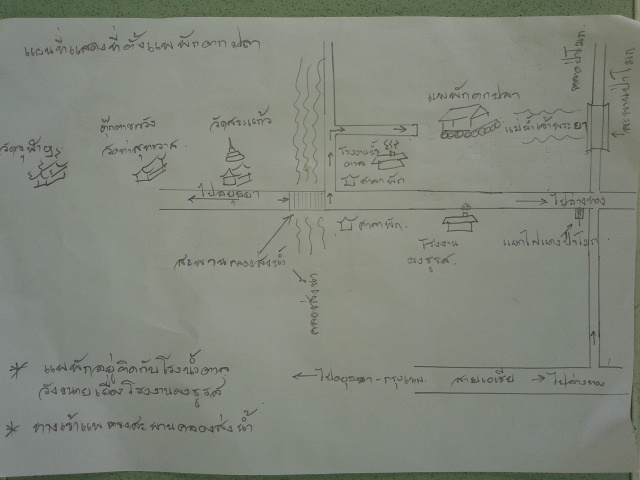 แผนที่แสดงที่ตั้งแพพักตกปลา
วัดสระแก้ว
แพพักตกปลา
แม่น้ำเจ้าพระยา
สะพานป่าโมก
ตลาดป่าโมก
โรงงานน้ำ
ตาล
ศาลาพัก
ไปอยุธยา
ไปอ่างทอง
ศาลาพัก
โรงงาน
ผงชูรส
แยกไฟแดงป่าโมก
สะพานคลองส่งน้ำ
คลองส่งน้ำ
ไปอยุธยา-กรุงเทพ
สายเอเซีย
ไปอ่างทอง
* แพพักอยู่ติดกับโรงน้ำตาล
โรงงานผงชูรส
* ทางเข้าแพตรงสะพานคลองส่งน้ำ